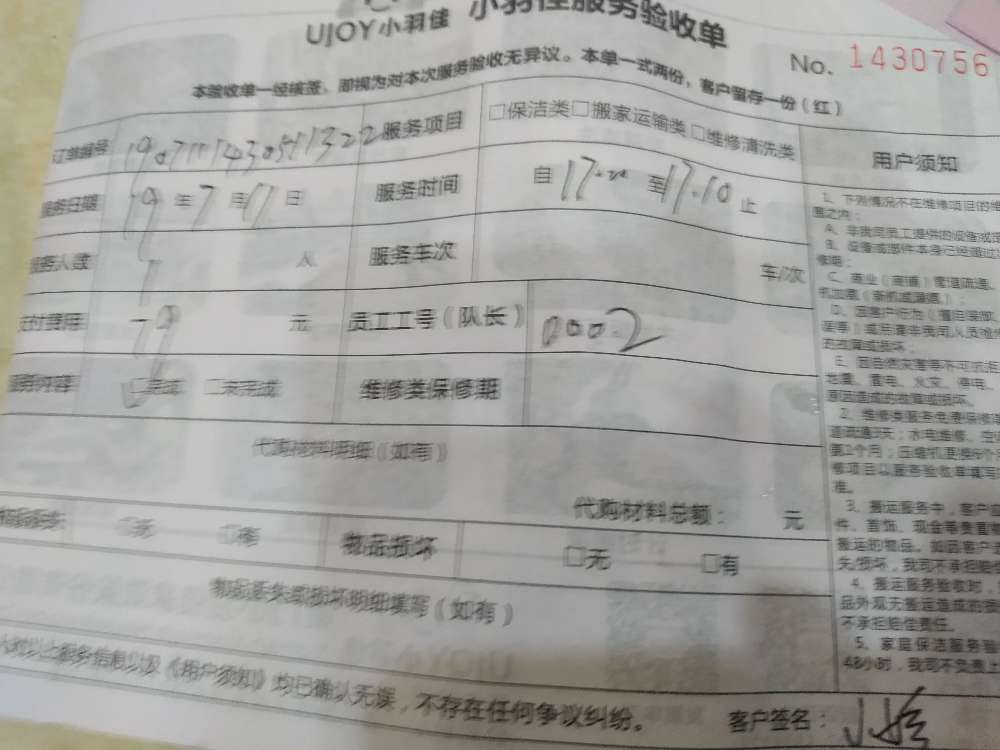 UJOY小羽佳 小羽佳服务验收单
No. 1430756
本验收单一经核签，即视为对本次服务验收无异议。本单一式两份，客户留存一份（红）
订单编号 服务项目 □保洁类□搬家运输类□维修清洗类
服务日期 19年7月17日 服务时间 自 至17.10止
服务人数 1人 服务车次 车/次
支付费用 79元 员工工号（队长） 0002
服务内容 □完成 □未完成 维修类保修期
代购材料明细（如有）
代购材料总额： 元
物品丢失 □无 □有 物品损坏 □无 □有
物品丢失或损坏明细填写（如有）
以上服务信息以及《用户须知》均已确认无误，不存在任何争议纠纷。 客户签名：
用户须知
1、下列情况不在维修项目的维
围之内：
A、非我司员工提供的设备或
B、设备或部件本身已经超过
C、商业（商铺）管道疏通、
D、因客户行为（擅自装修、
或后果非我司人员检
E、因自然灾害等不可抗
地震、雷电、火灾、停电、
原因造成的故障或损坏。
2、维修类服务免费保修
3、搬运服务中，客户应
件、首饰、现金等贵重
搬运的物品。如因客户
失/损坏，我司不承担赔
4、搬运服务验收时，
品外观无搬运造成的损
不承担赔偿责任。
5、家庭保洁服务验
48小时，我司不负责上